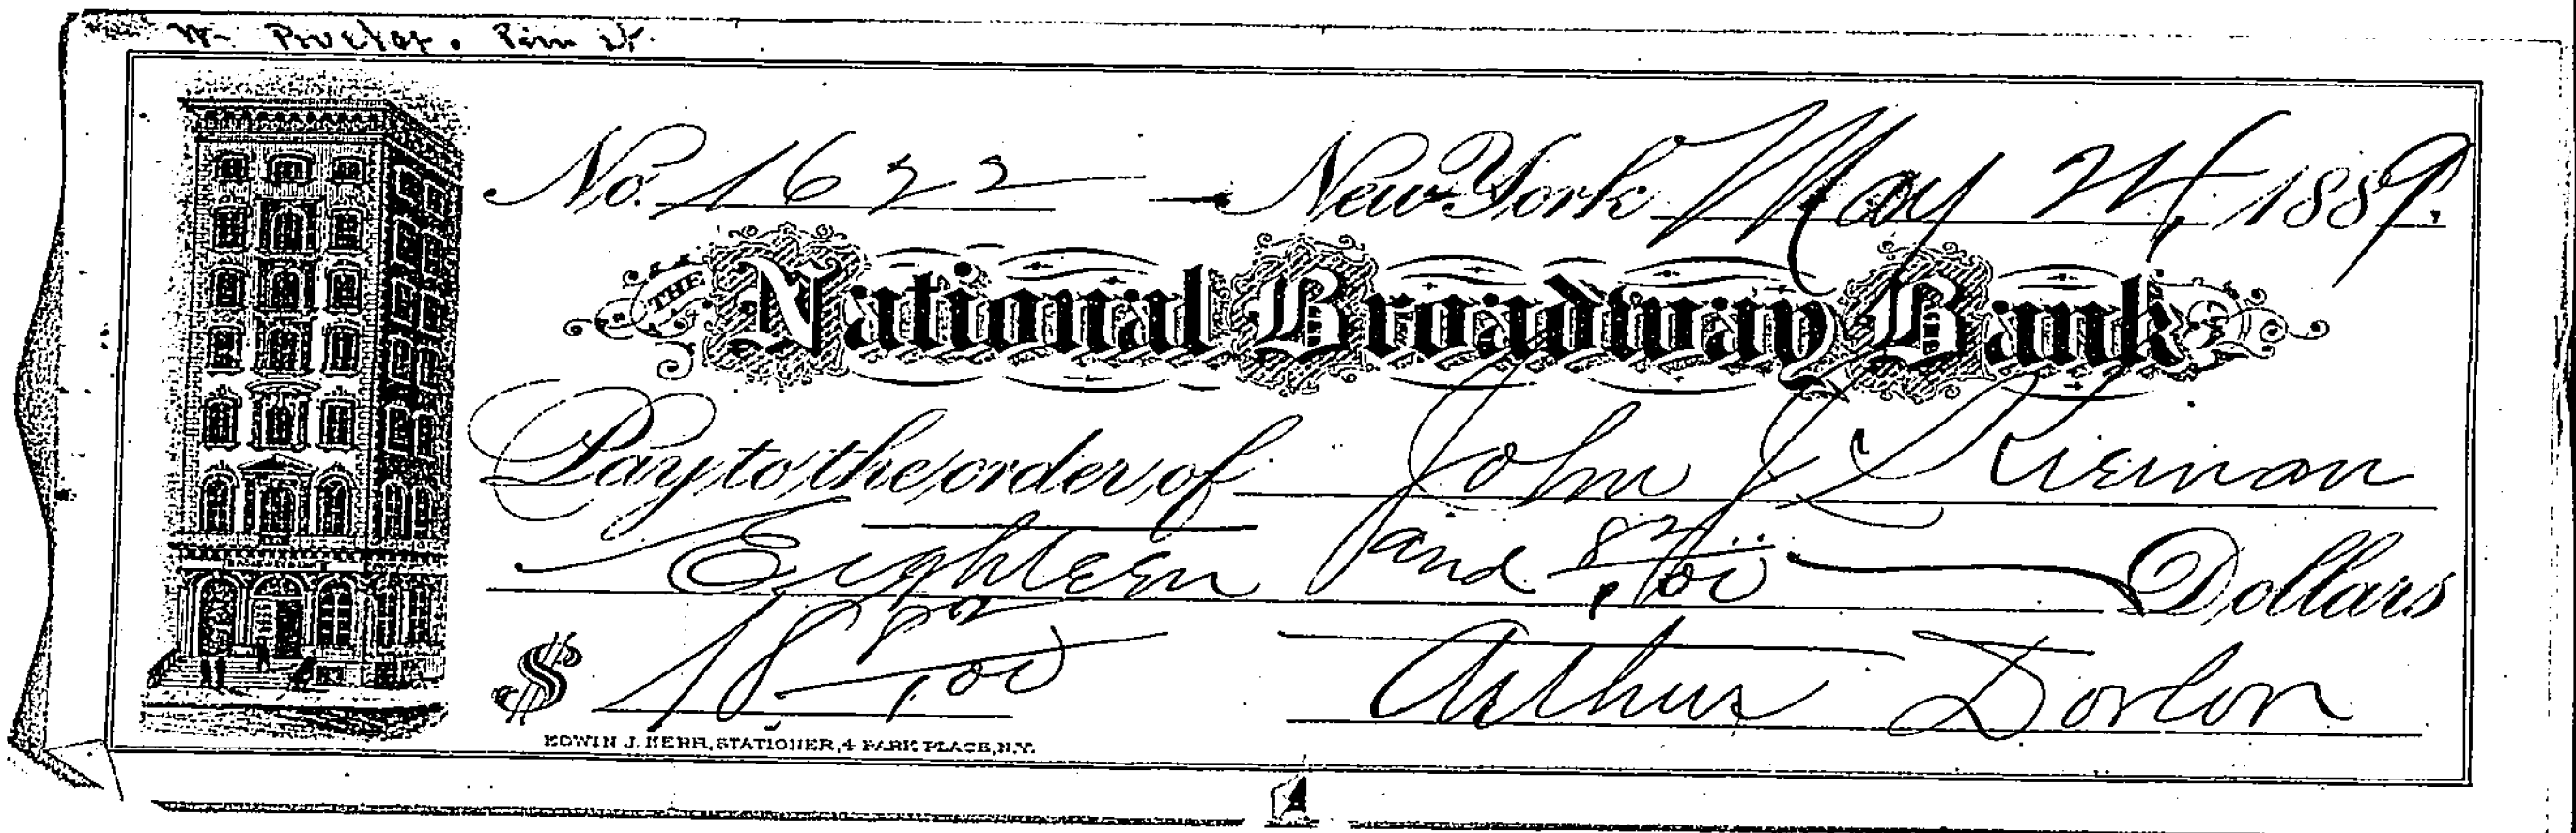 No. 1622 New York May 24 1889
THE National Broadway Bank
Pay to the order of John J Kiernan
Eighteen and 82/100 Dollars
$ 18 82/100 Arthur Dorlon
EDWIN J. KERR, STATIONER, 4 PARK PLACE, N.Y.